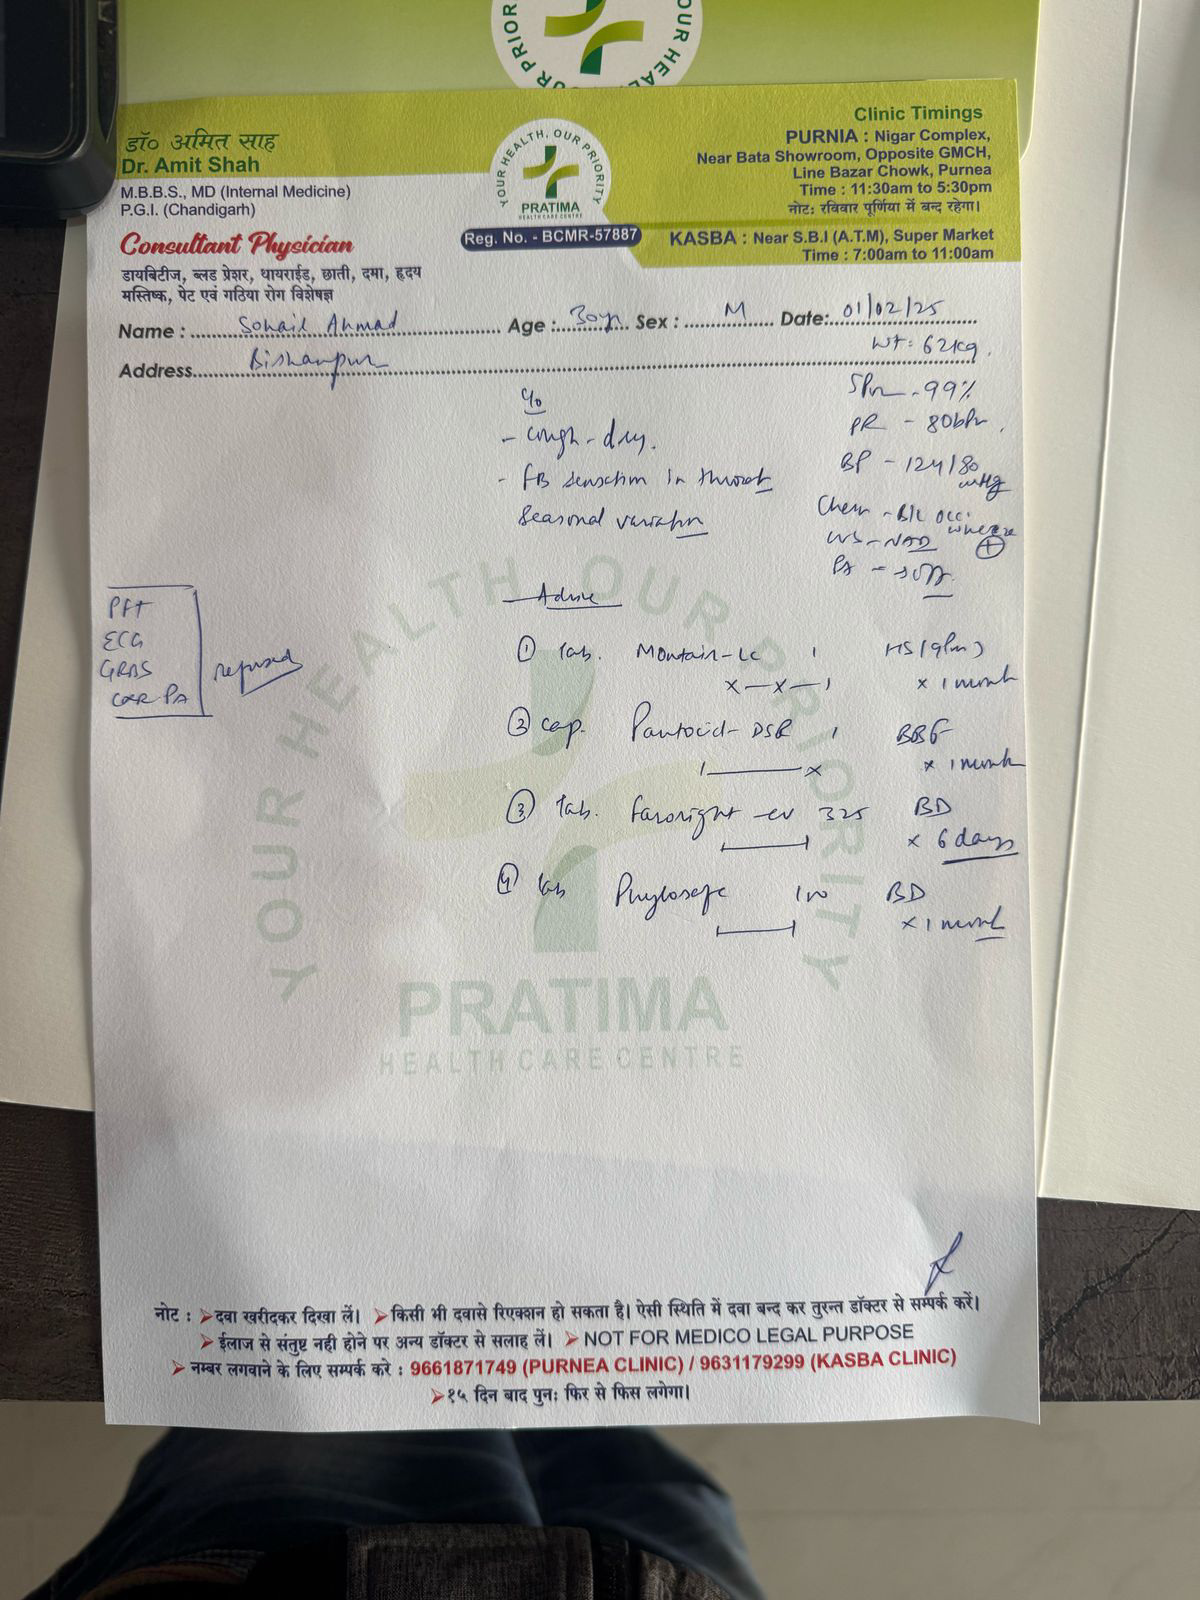 YOUR HEALTH, OUR PRIORITY
डॉ० अमित साह
Dr. Amit Shah
M.B.B.S., MD (Internal Medicine)
P.G.I. (Chandigarh)
Consultant Physician
डायबिटीज, ब्लड प्रेशर, थायराईड, छाती, दमा, हृदय
मस्तिष्क, पेट एवं गठिया रोग विशेषज्ञ
YOUR HEALTH, OUR PRIORITY
PRATIMA
HEALTH CARE CENTRE
Reg. No. - BCMR-57887
Clinic Timings
PURNIA : Nigar Complex,
Near Bata Showroom, Opposite GMCH,
Line Bazar Chowk, Purnea
Time : 11:30am to 5:30pm
नोट: रविवार पूर्णिया में बन्द रहेगा।
KASBA : Near S.B.I (A.T.M), Super Market
Time : 7:00am to 11:00am
Name : Sohail Ahmad Age : 30yr Sex : M Date: 01/02/25
Address Bishanpur
WT: 62kg
c/o
- cough - dry.
- FB sensation in throat
Seasonal variation
SPO2 - 99%
PR - 80bpm
BP - 124/80 mmHg
Chest - B/L occ. wheeze +
- NAD
PA - soft
PFT
ECG
GRBS
CXR-PA
refused
Advise
① Tab. Montair-LC 1 HS (9pm)
x—x—1 x 1 month
② Cap. Pantocid-DSR 1 BBF
1———x x 1 month
③ Tab. Faroright -CV 325 BD
x 6 days
④ Tab BD
x 1 month
YOUR HEALTH OUR PRIORITY
PRATIMA
HEALTH CARE CENTRE
नोट : ➢दवा खरीदकर दिखा लें। ➢किसी भी दवासे रिएक्शन हो सकता है। ऐसी स्थिति में दवा बन्द कर तुरन्त डॉक्टर से सम्पर्क करें।
➢ईलाज से संतुष्ट नही होने पर अन्य डॉक्टर से सलाह लें। ➢NOT FOR MEDICO LEGAL PURPOSE
➢नम्बर लगवाने के लिए सम्पर्क करे : 9661871749 (PURNEA CLINIC) / 9631179299 (KASBA CLINIC)
➢१५ दिन बाद पुनः फिर से फिस लगेगा।